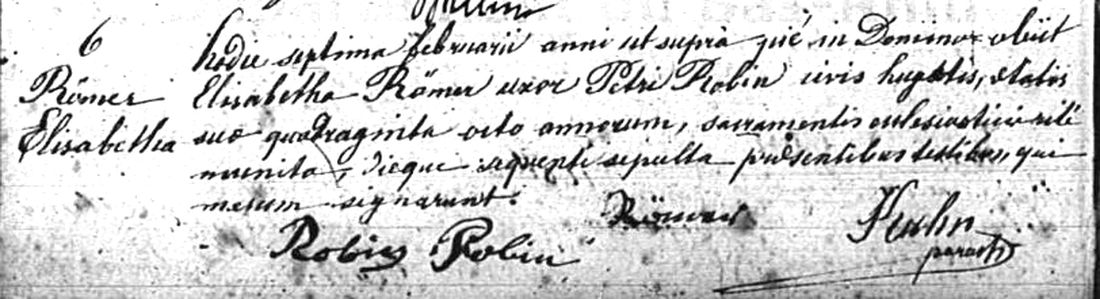 6
Römer
Elisabetha
hodie septima februarii anni ut supra piè in Domino obiit
Elisabetha Römer uxor Petri Robin civis hujatis, ætatis
suæ quadraginta octo annorum, sacramentis ecclesiasticis rite
munita, dieque sequenti sepulta præsentibus testibus, qui
mecum signarunt.
Robin Robin Römer Kuhn